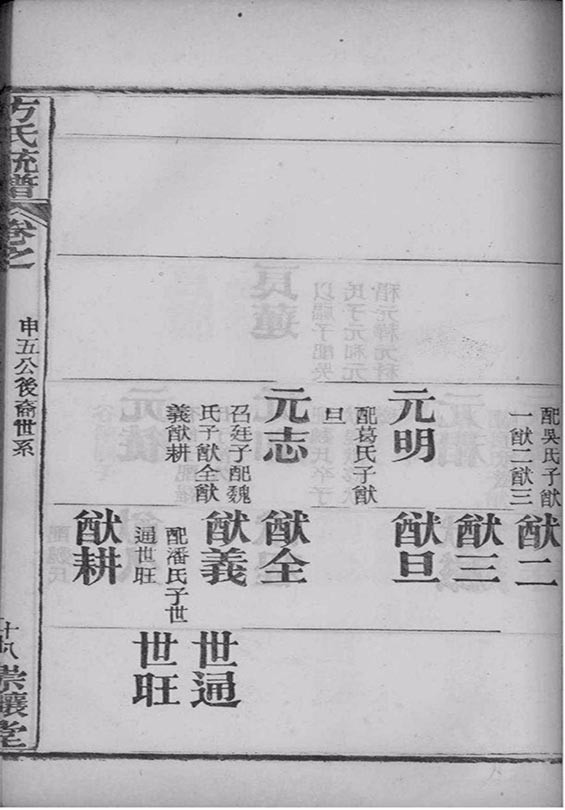 配吳氏子猷
一猷二猷三
元明
配葛氏子猷
旦
元志
召廷子配魏
氏子猷全猷
義猷耕
猷二
猷三
猷旦
猷全
猷義
配潘氏子世
通世旺
猷耕
世通
世旺
方氏統譜
卷之
申五公後裔世系
十八
崇讓堂